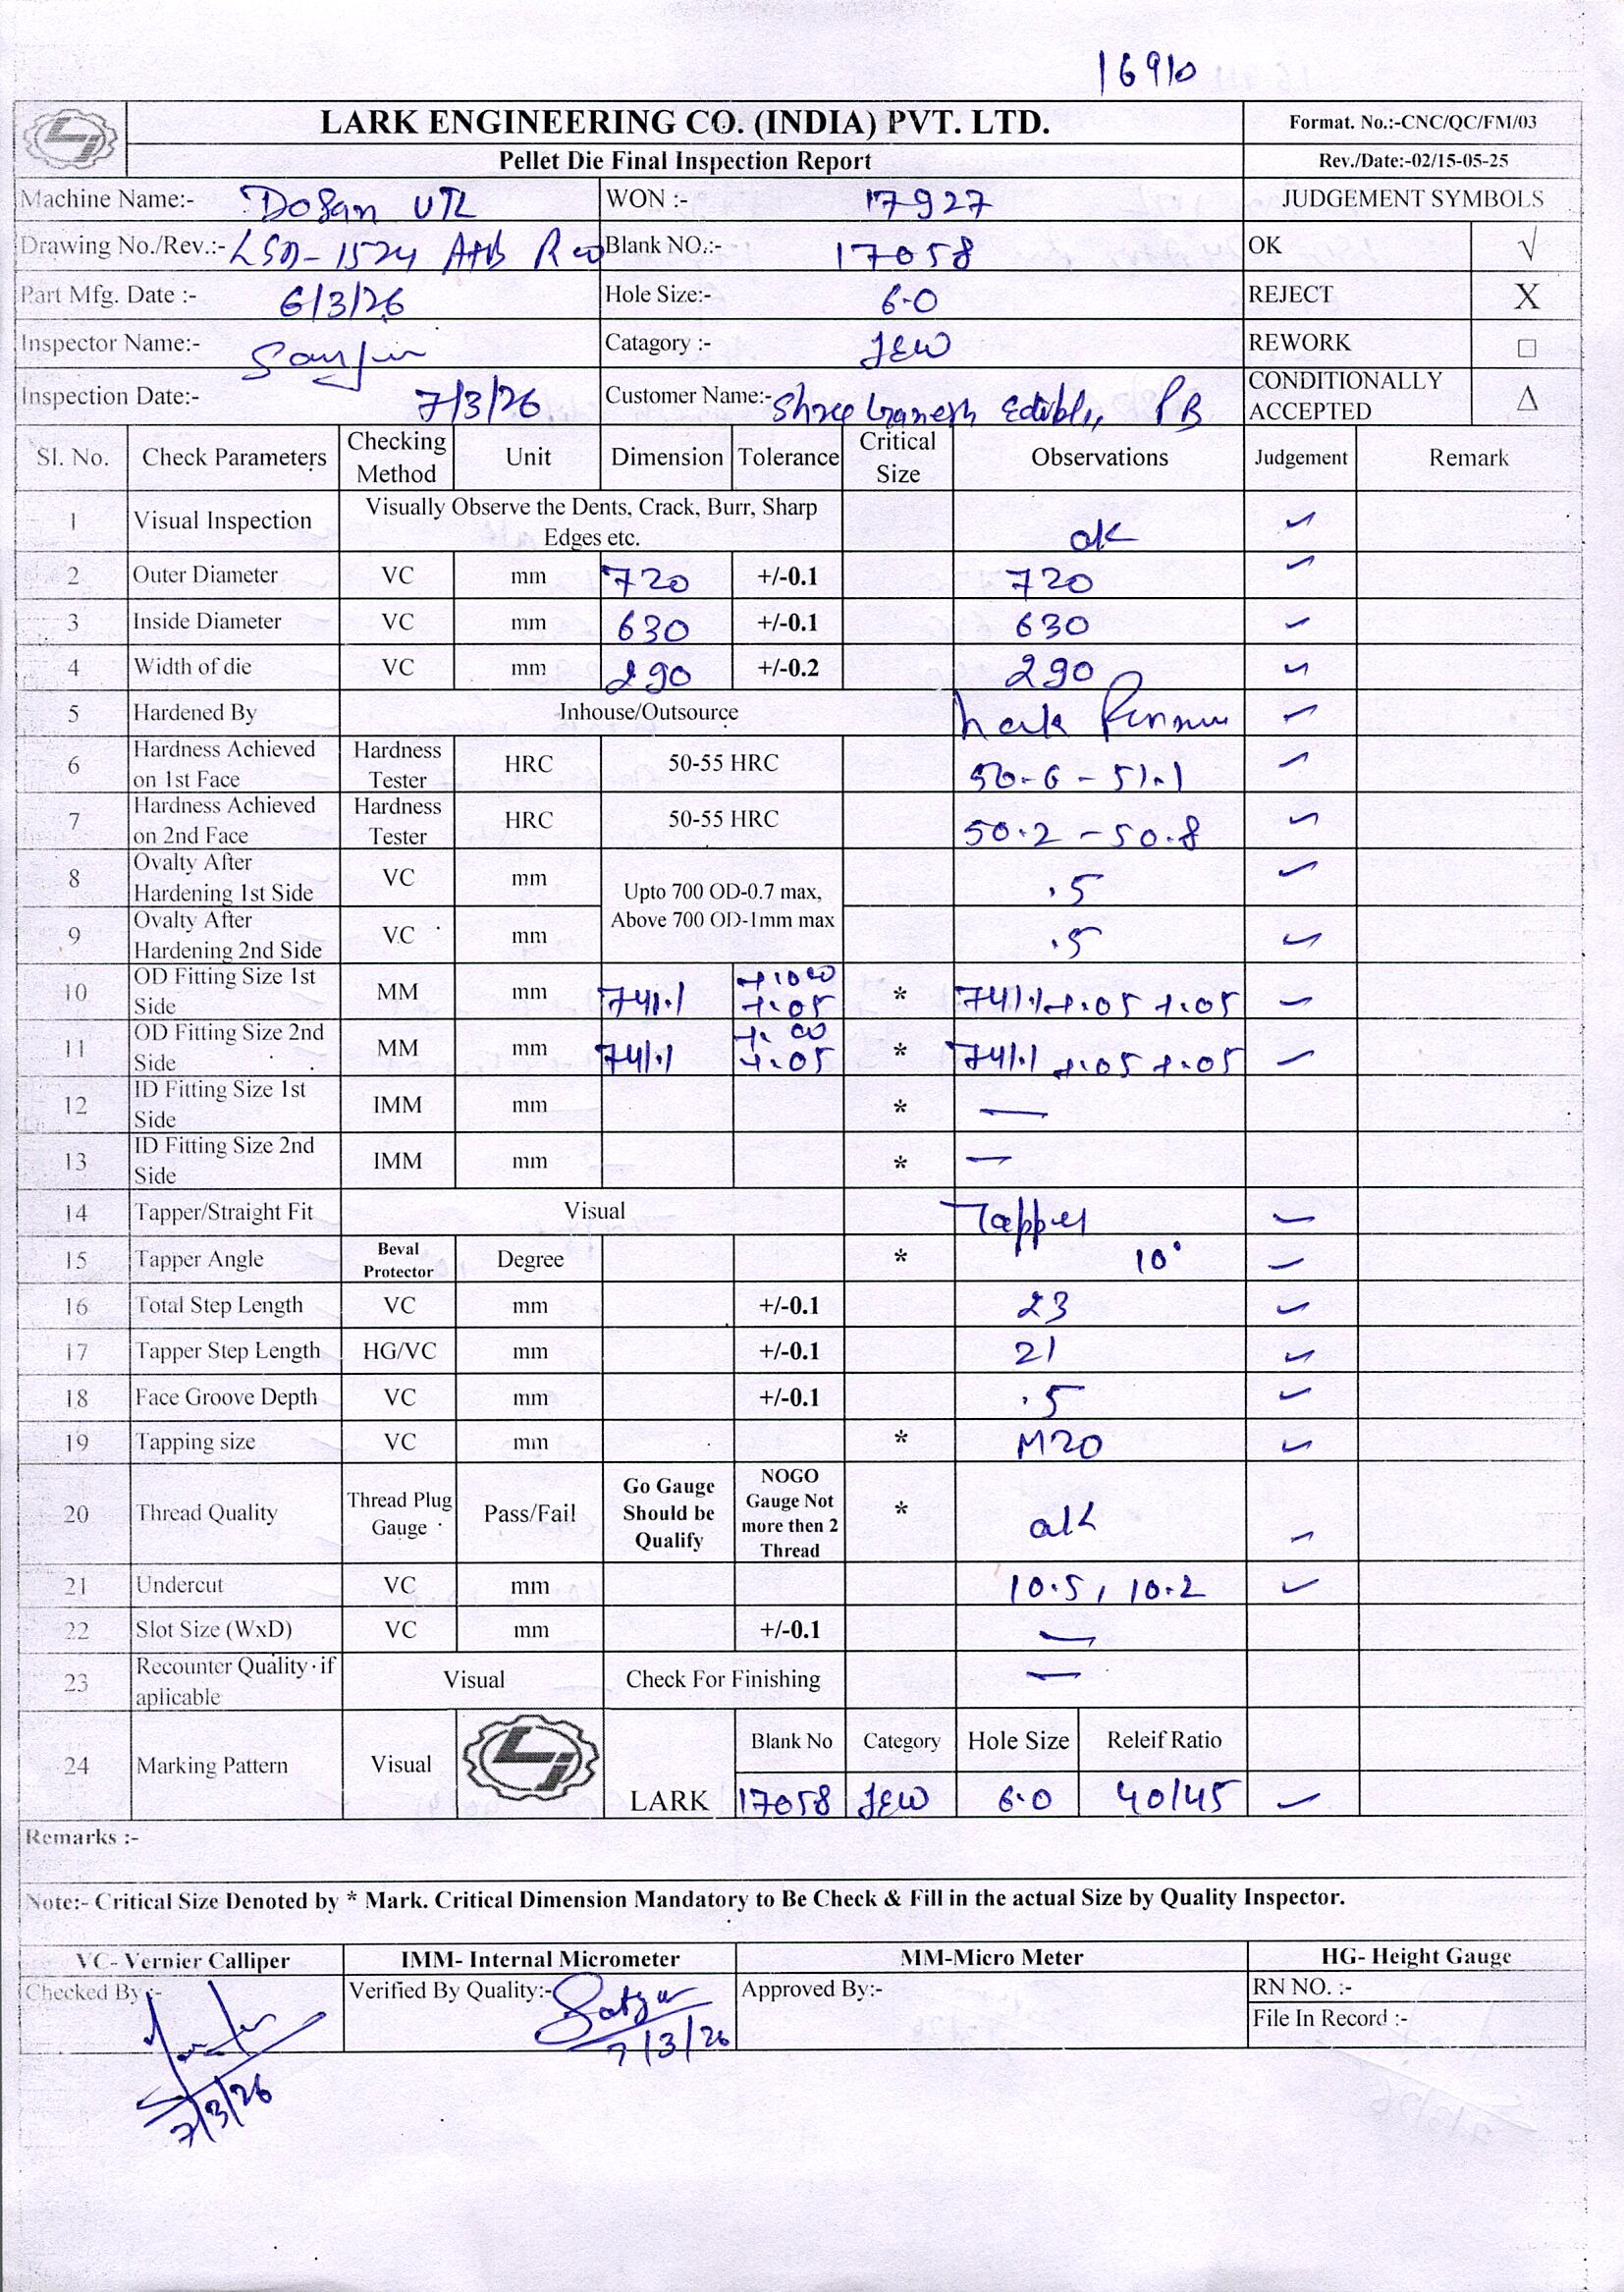 16910
LARK ENGINEERING CO. (INDIA) PVT. LTD.
Format. No.:-CNC/QC/FM/03
Pellet Die Final Inspection Report
Rev./Date:-02/15-05-25
Machine Name:- Dosan VTL WON :- 17927 JUDGEMENT SYMBOLS
Drawing No./Rev.:- LSD-1524 A+B Blank NO.:- 17058 OK √
Part Mfg. Date :- 6/3/26 Hole Size:- 6.0 REJECT X
Inspector Name:- Catagory :- JEW REWORK □
Inspection Date:- 7/3/26 Customer Name:- Shree Ganesh Edibles, PB CONDITIONALLY ACCEPTED Δ
Sl. No. Check Parameters Checking Method Unit Dimension Tolerance Critical Size Observations Judgement Remark
1 Visual Inspection Visually Observe the Dents, Crack, Burr, Sharp Edges etc. ok ✓
2 Outer Diameter VC mm 720 +/-0.1 720 ✓
3 Inside Diameter VC mm 630 +/-0.1 630 ✓
4 Width of die VC mm 290 +/-0.2 290 ✓
5 Hardened By Inhouse/Outsource Lark ✓
6 Hardness Achieved on 1st Face Hardness Tester HRC 50-55 HRC 50.6 - 51.1 ✓
7 Hardness Achieved on 2nd Face Hardness Tester HRC 50-55 HRC 50.2 - 50.8 ✓
8 Ovalty After Hardening 1st Side VC mm Upto 700 OD-0.7 max, Above 700 OD-1mm max .5 ✓
9 Ovalty After Hardening 2nd Side VC mm .5 ✓
10 OD Fitting Size 1st Side MM mm 741.1 +.05 * 741.1 +.05 +.05 ✓
11 OD Fitting Size 2nd Side MM mm 741.1 +.00 +.05 * 741.1 +.05 +.05 ✓
12 ID Fitting Size 1st Side IMM mm * —
13 ID Fitting Size 2nd Side IMM mm * —
14 Tapper/Straight Fit Visual Tapper ✓
15 Tapper Angle Beval Protector Degree * 10° ✓
16 Total Step Length VC mm +/-0.1 23 ✓
17 Tapper Step Length HG/VC mm +/-0.1 21 ✓
18 Face Groove Depth VC mm +/-0.1 .5 ✓
19 Tapping size VC mm * M20 ✓
20 Thread Quality Thread Plug Gauge Pass/Fail Go Gauge Should be Qualify NOGO Gauge Not more then 2 Thread * ok ✓
21 Undercut VC mm 10.5, 10.2 ✓
22 Slot Size (WxD) VC mm +/-0.1 —
23 Recounter Quality if aplicable Visual Check For Finishing —
24 Marking Pattern Visual LARK Blank No Category Hole Size Releif Ratio
17058 JEW 6.0 40/45 ✓
Remarks :-
Note:- Critical Size Denoted by * Mark. Critical Dimension Mandatory to Be Check & Fill in the actual Size by Quality Inspector.
VC- Vernier Calliper IMM- Internal Micrometer MM-Micro Meter HG- Height Gauge
Checked By :- Verified By Quality:- Approved By:- RN NO. :-
File In Record :-
7/3/26
7/3/26